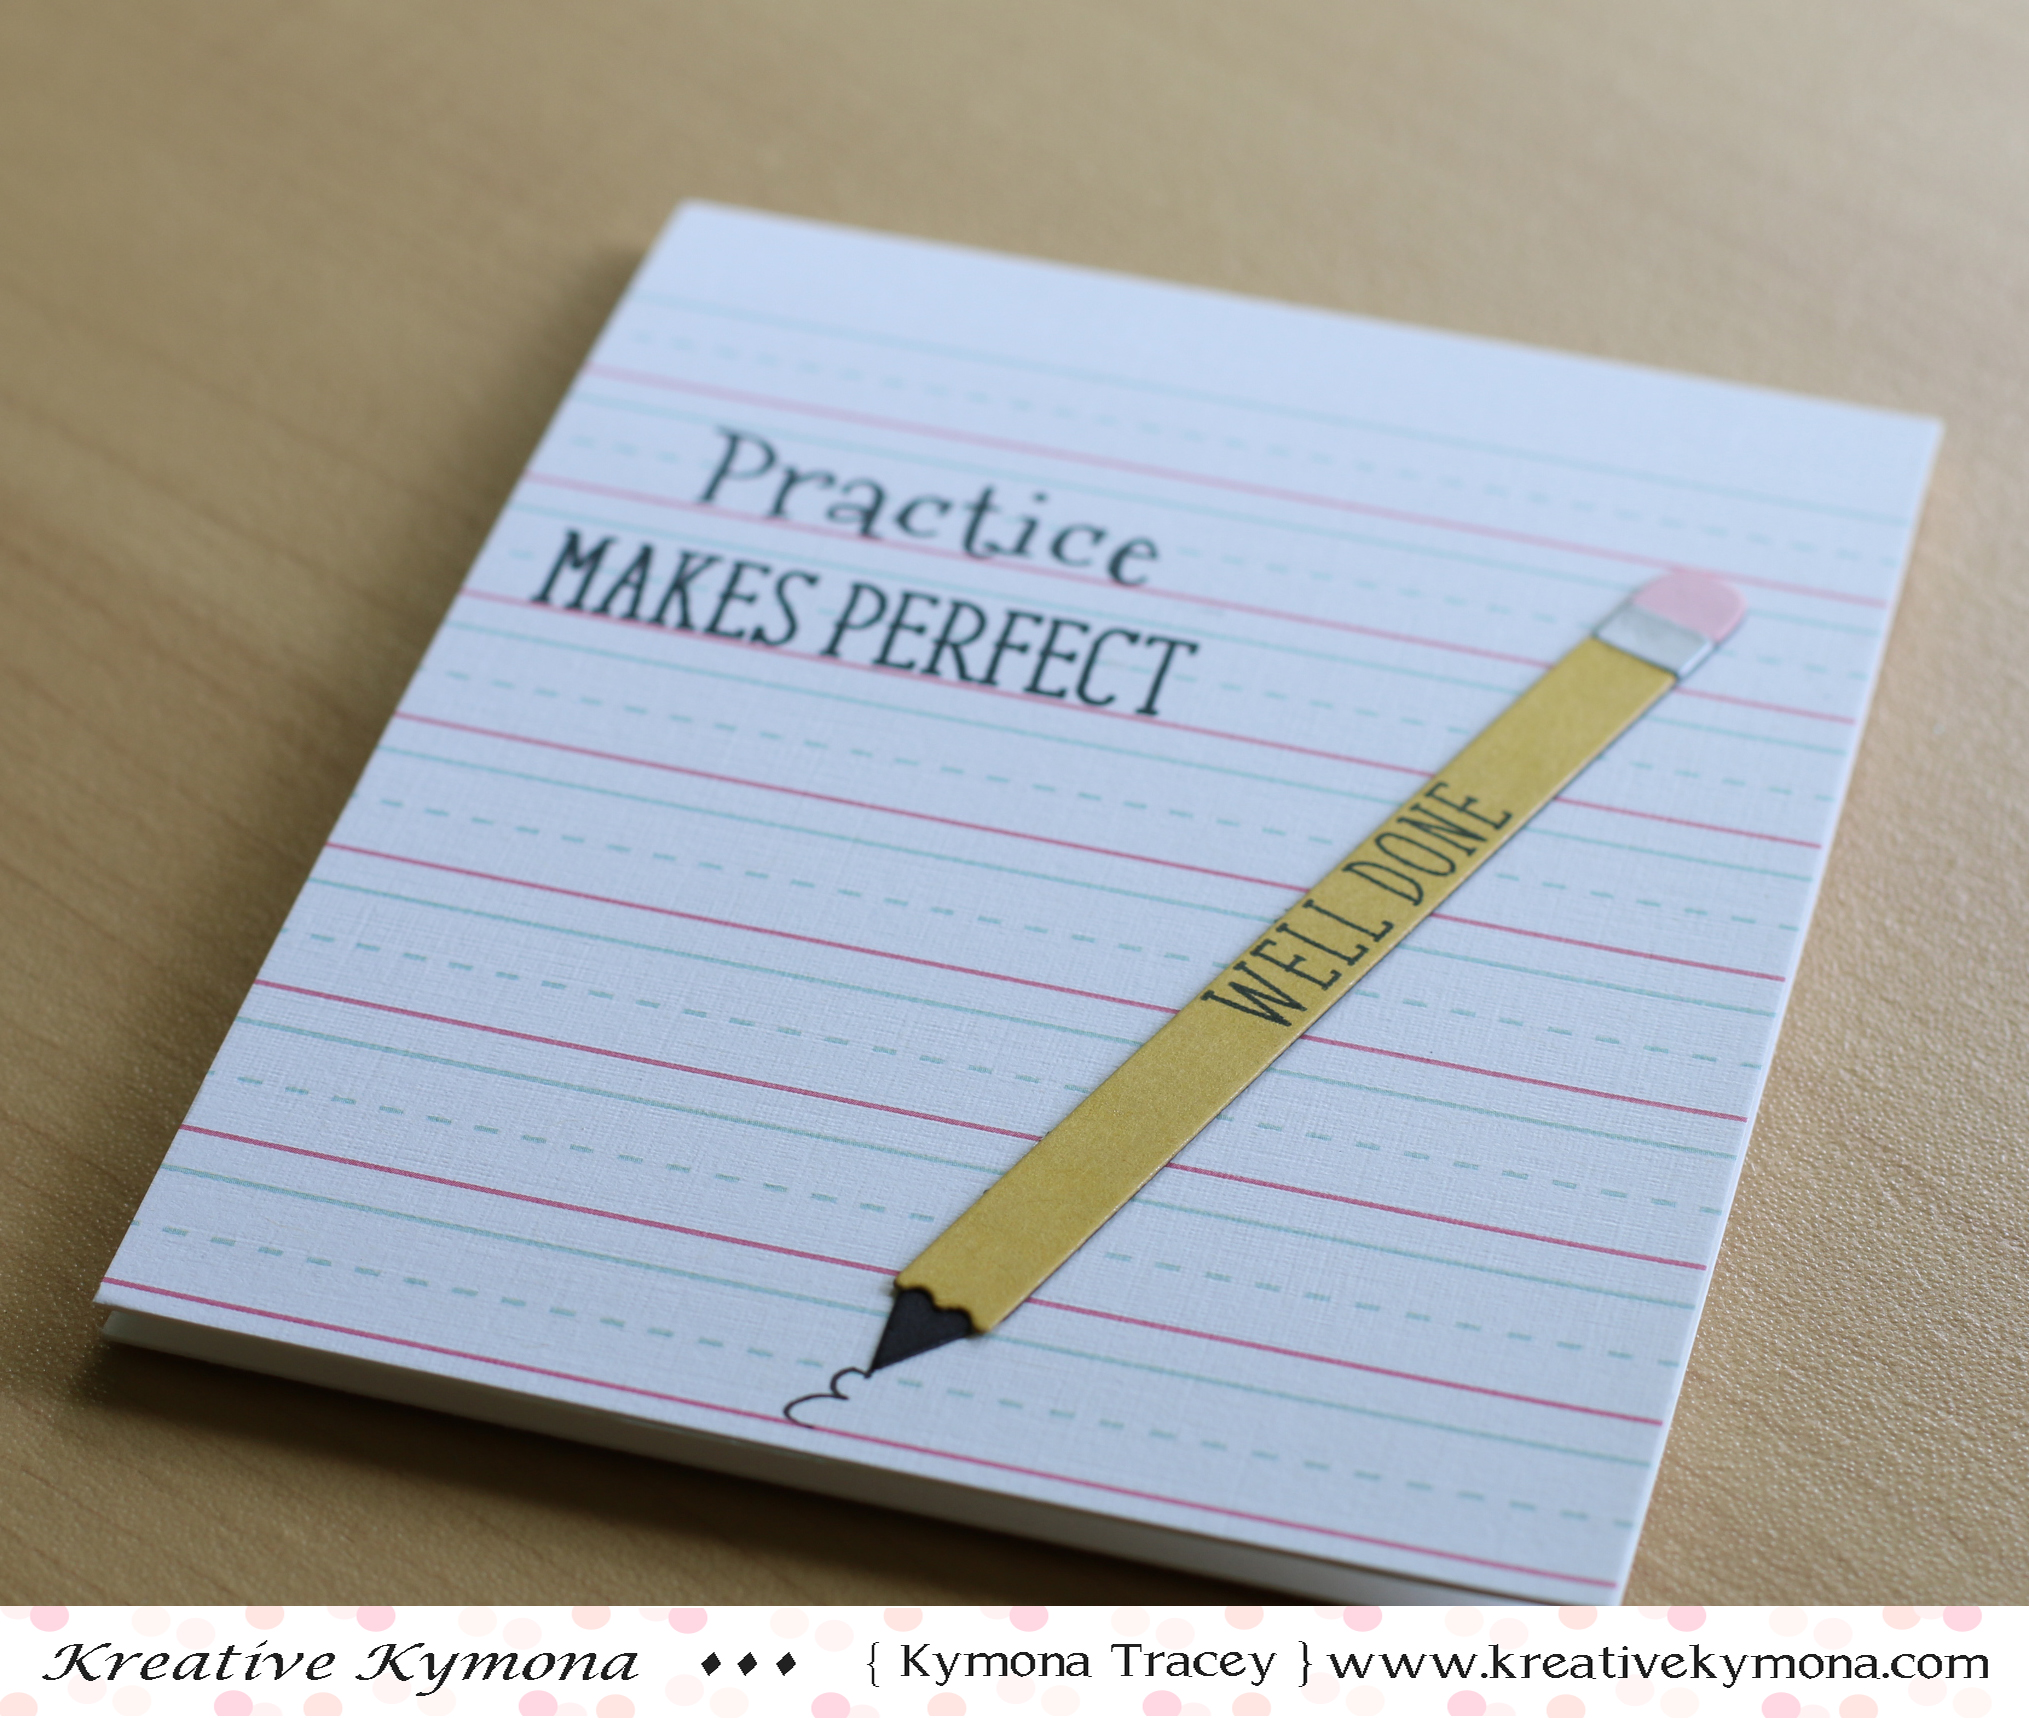 Practice
MAKES PERFECT
WELL DONE
Kreative Kymona ♦♦♦ { Kymona Tracey } www.kreativekymona.com